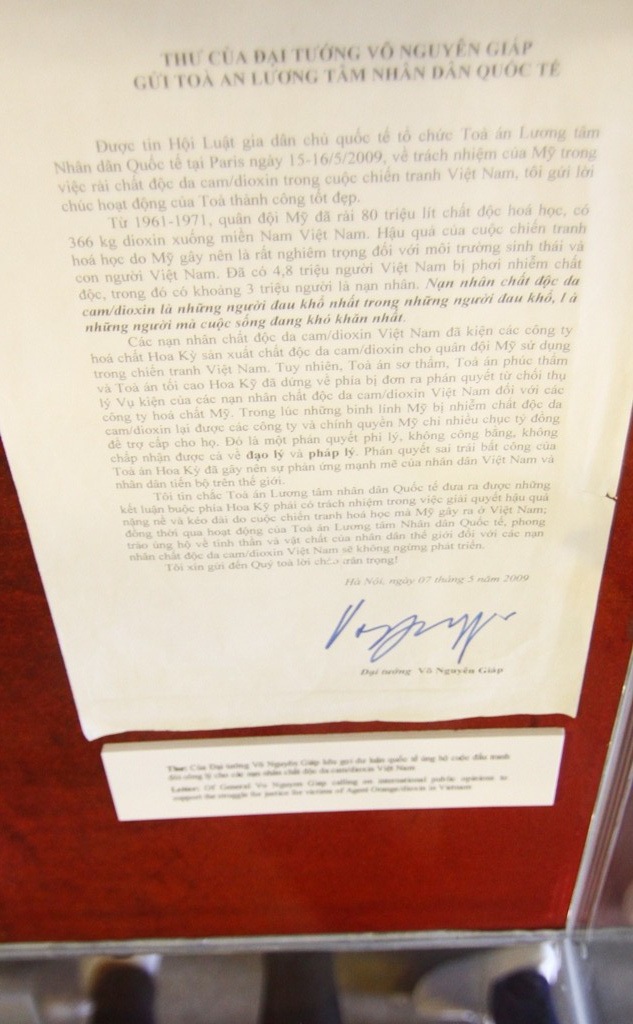 THƯ CỦA ĐẠI TƯỚNG VÕ NGUYÊN GIÁP
GỬI TOÀ AN LƯƠNG TÂM NHÂN DÂN QUỐC TẾ
Được tin Hội Luật gia dân chủ quốc tế tổ chức Toà án Lương tâm
Nhân dân Quốc tế tại Paris ngày 15-16/5/2009, về trách nhiệm của Mỹ trong
việc rải chất độc da cam/dioxin trong cuộc chiến tranh Việt Nam, tôi gửi lời
chúc hoạt động của Toà thành công tốt đẹp.
Từ 1961-1971, quân đội Mỹ đã rải 80 triệu lít chất độc hoá học, có
366 kg dioxin xuống miền Nam Việt Nam. Hậu quả của cuộc chiến tranh
hoá học do Mỹ gây nên là rất nghiêm trọng đối với môi trường sinh thái và
con người Việt Nam. Đã có 4,8 triệu người Việt Nam bị phơi nhiễm chất
độc, trong đó có khoảng 3 triệu người là nạn nhân. Nạn nhân chất độc da
cam/dioxin là những người đau khổ nhất trong những người đau khổ, là
những người mà cuộc sống đang khó khăn nhất.
Các nạn nhân chất độc da cam/dioxin Việt Nam đã kiện các công ty
hoá chất Hoa Kỳ sản xuất chất độc da cam/dioxin cho quân đội Mỹ sử dụng
trong chiến tranh Việt Nam. Tuy nhiên, Toà án sơ thẩm, Toà án phúc thẩm
và Toà án tối cao Hoa Kỳ đã đứng về phía bị đơn ra phán quyết từ chối thụ
lý Vụ kiện của các nạn nhân chất độc da cam/dioxin Việt Nam đối với các
công ty hoá chất Mỹ. Trong lúc những binh lính Mỹ bị nhiễm chất độc da
cam/dioxin lại được các công ty và chính quyền Mỹ chi nhiều chục tỷ đồng
để trợ cấp cho họ. Đó là một phán quyết phi lý, không công bằng, không
chấp nhận được cả về đạo lý và pháp lý. Phán quyết sai trái bất công của
Toà án Hoa Kỳ đã gây nên sự phản ứng mạnh mẽ của nhân dân Việt Nam và
nhân dân tiến bộ trên thế giới.
Tôi tin chắc Toà án Lương tâm nhân dân Quốc tế đưa ra được những
kết luận buộc phía Hoa Kỳ phải có trách nhiệm trong việc giải quyết hậu quả
nặng nề và kéo dài do cuộc chiến tranh hoá học mà Mỹ gây ra ở Việt Nam;
đồng thời qua hoạt động của Toà án Lương tâm Nhân dân Quốc tế, phong
trào ủng hộ về tinh thần và vật chất của nhân dân thế giới đối với các nạn
nhân chất độc da cam/dioxin Việt Nam sẽ không ngừng phát triển.
Tôi xin gửi đến Quý toà lời chào trân trọng!
Hà Nội, ngày 07 tháng 5 năm 2009
Đại tướng Võ Nguyên Giáp
Thư: Của Đại tướng Võ Nguyên Giáp kêu gọi dư luận quốc tế ủng hộ cuộc đấu tranh
đòi công lý cho các nạn nhân chất độc da cam/dioxin Việt Nam
Letter: Of General Vo Nguyen Giap calling on international public opinions to
support the struggle for justice for victims of Agent Orange/dioxin in Vietnam